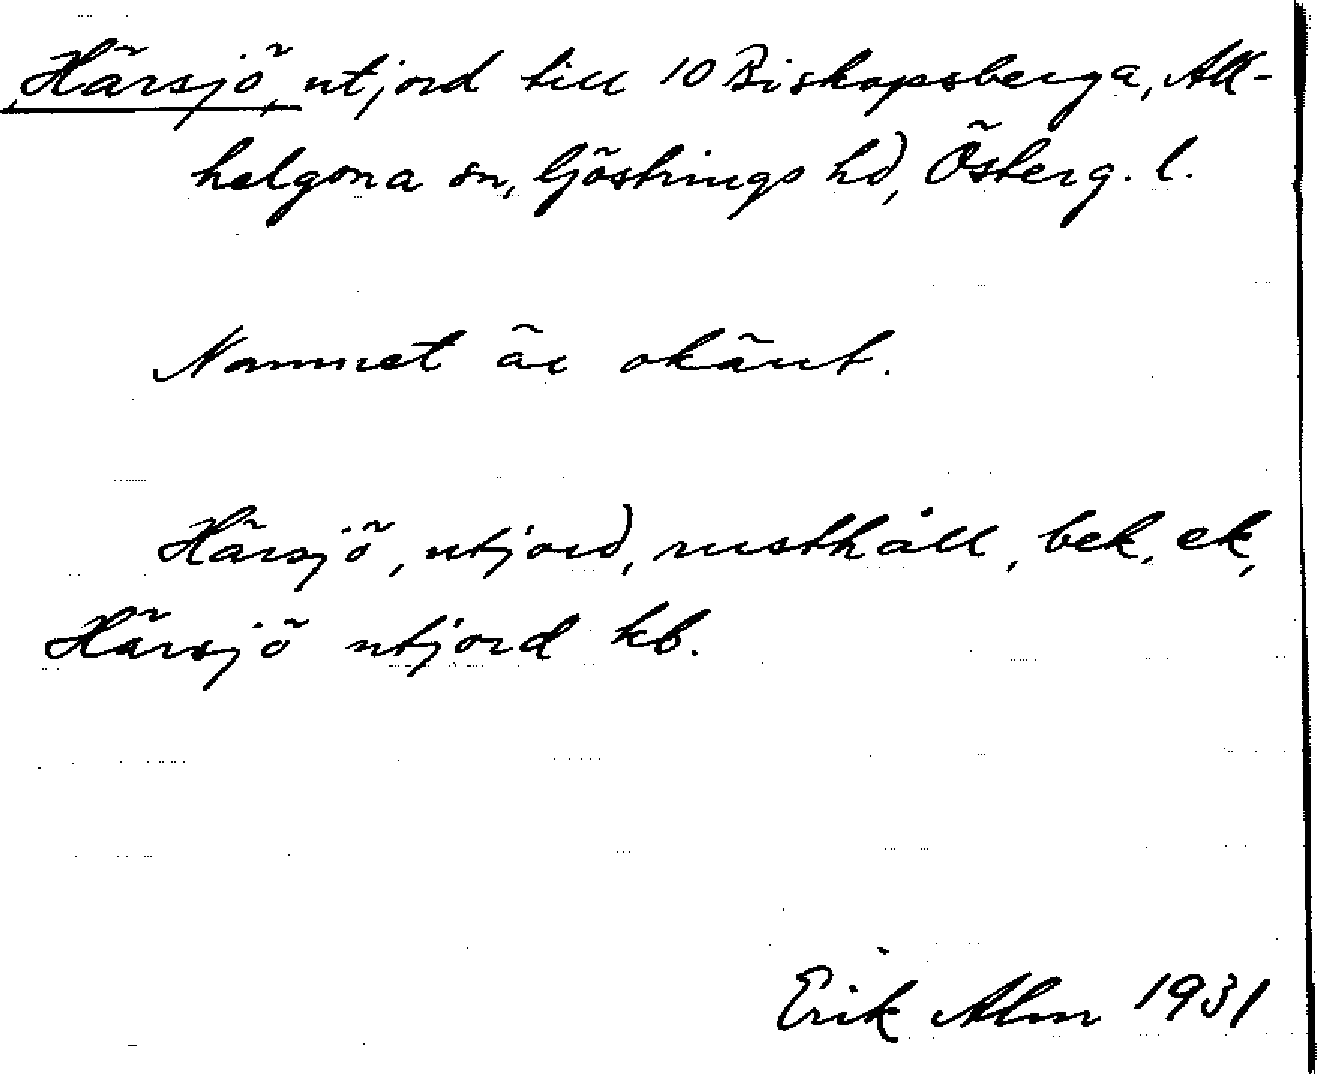 Härsjö, utjord till 10 Biskopsberga, All-
helgona sn, Göstrings hd, Österg. l.
Namnet är okänt.
Härsjö, utjord, rusthåll, bek. ek,
Härsjö utjord kb.
Erik Alm 1931